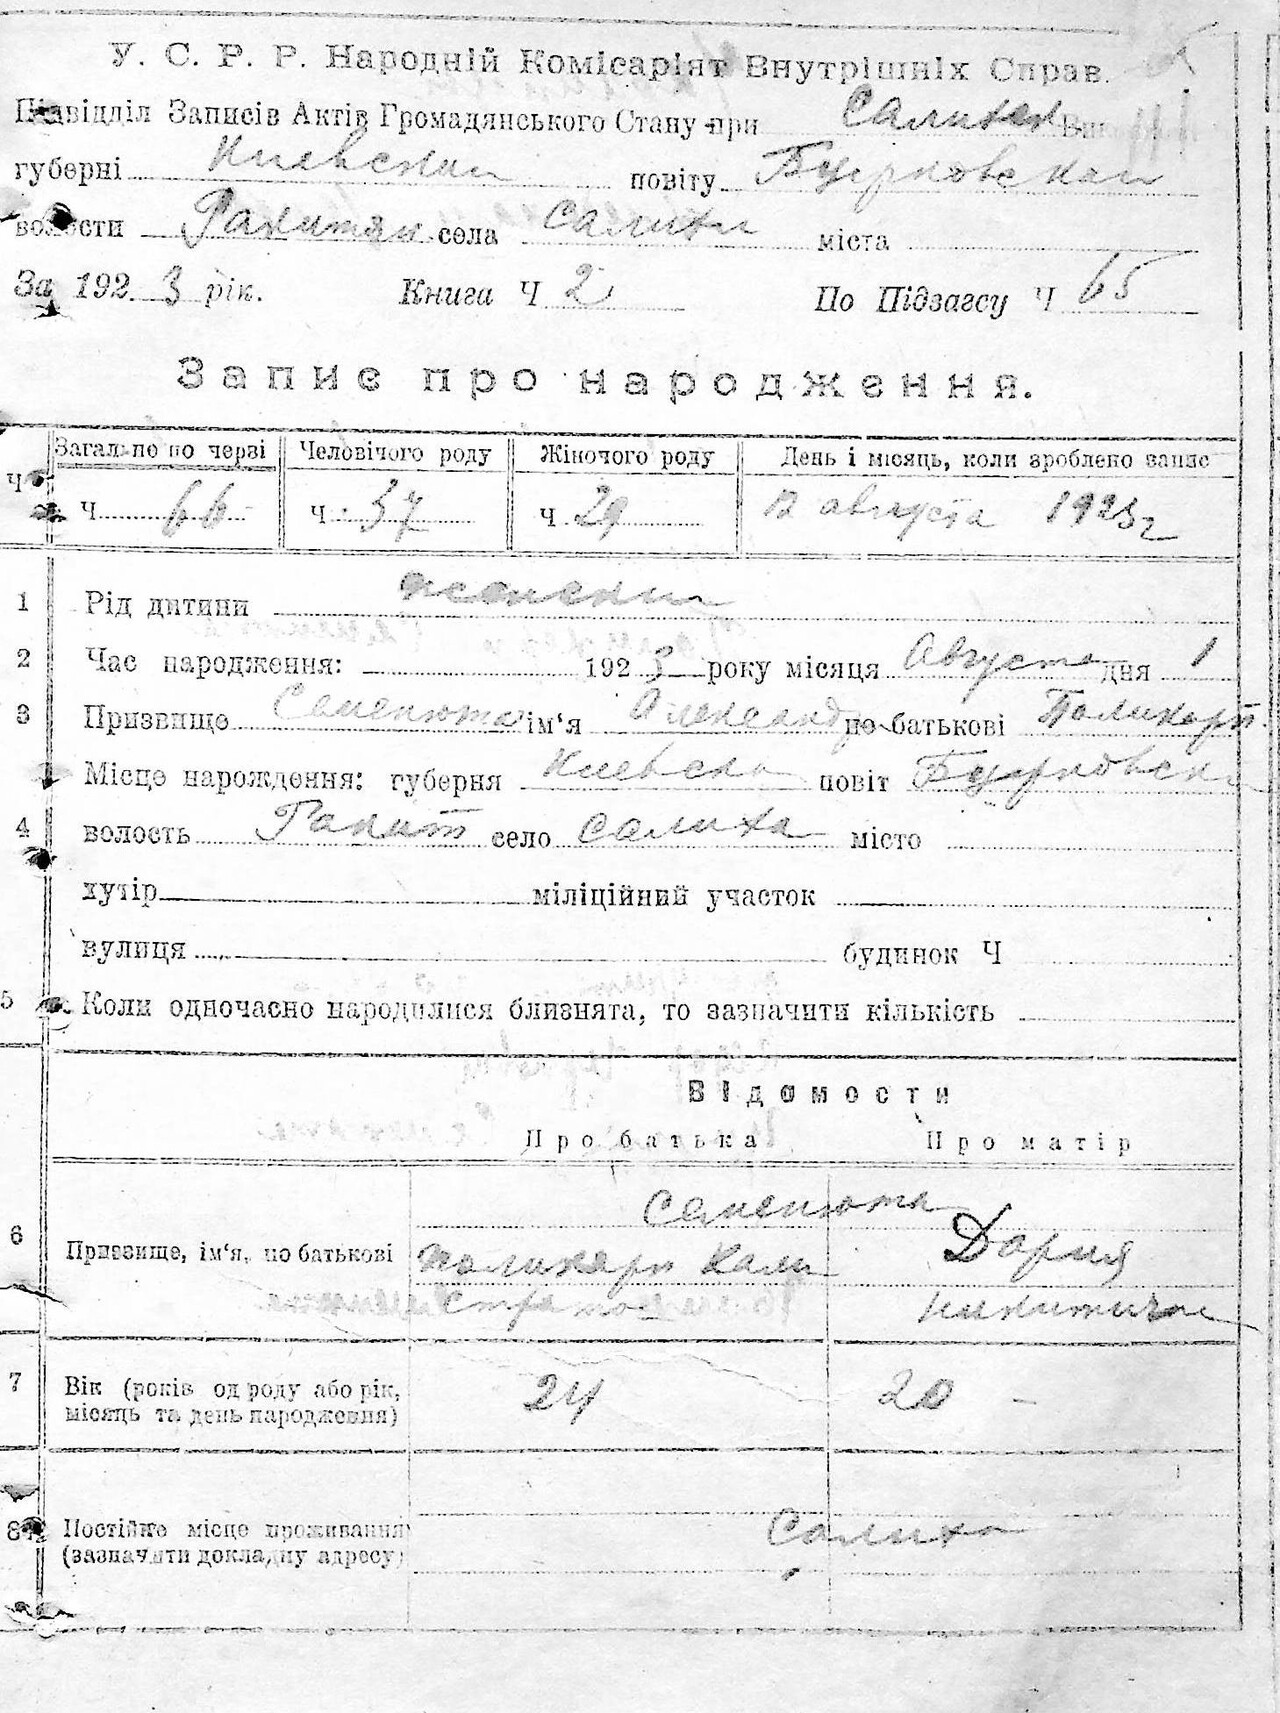 У. С. Р. Р. Народній Комісаріят Внутрішніх Справ.
Підвідділ Записів Актів Громадянського Стану при Салихан
губерні Киевской повіту
волости Ракитян села Салихи міста
За 192 3 рік. Книга Ч 2 По Підзагсу Ч 65
Запис про народження.
Загально по черзі Человічого роду Жіночого роду День і місяць, коли зроблено запис
Ч Ч 66 Ч 37 Ч 29 12 августа 1923 г
1 Рід дитини женский
2 Час народження: 192 3 року місяця Августа дня 1
3 Призвище Семенюта ім'я Александр по батькові Поликарп
Місце нарождення: губерня Киевска повіт
4 волость Ракит село Салиха місто
хутір міліційний участок
вулиця будинок Ч
5 Коли одночасно народилися близнята, то зазначити кількість
Відомости
Про батька Про матір
Семенюта
6 Призвище, ім'я, по батькові Поликарп Кали Дария
стратов Никитична
7 Вік (років од роду або рік, 24 20 –
місяць та день народження)
8 Постійне місце проживання Салиха
(зазначити докладну адресу)